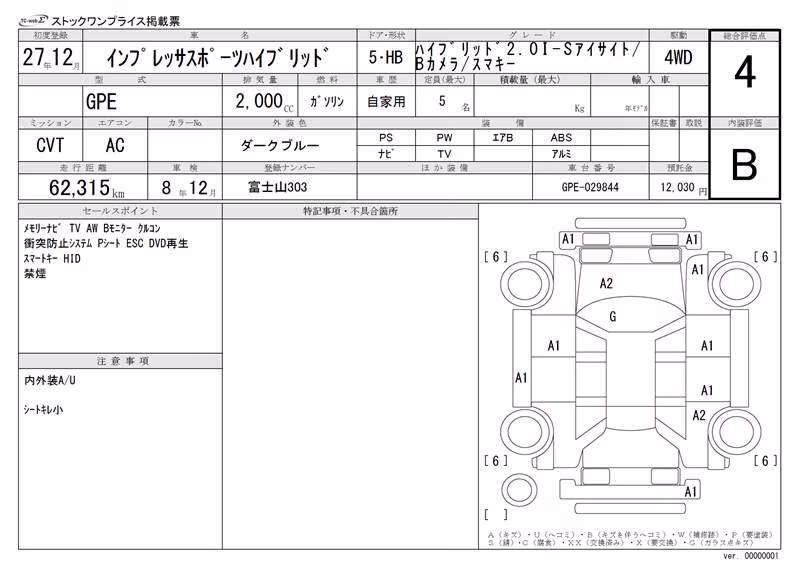 TC-webΣ ストックワンプライス掲載票
初度登録 車名 ドア・形状 グレード 駆動 総合評価点
27年12月 インプレッサスポーツハイブリッド 5・HB ハイブリッド2.0I-Sアイサイト/
Bカメラ/スマキー 4WD 4
型式 排気量 燃料 車歴 定員(最大) 積載量(最大) 輸入車
GPE 2,000CC ガソリン 自家用 5名 Kg 年モデル
ミッション エアコン カラーNo. 外装色 装備 保証書 取説 内装評価
CVT AC ダークブルー PS PW エアB ABS B
ナビ TV アルミ
走行距離 車検 登録ナンバー ほか装備 車台番号 預託金
62,315km 8年12月 富士山303 GPE-029844 12,030円
セールスポイント 特記事項・不具合箇所
メモリーナビ TV AW Bモニター クルコン
衝突防止システム Pシート ESC DVD再生
スマートキー HID
禁煙
注意事項
内外装A/U
シートキレ小
A1 A1
[6] A1 [6]
A2
G
A1 A1
A1 A1
A2
[6] [6]
A1
[ ]
A(キズ)・U(ヘコミ)・B(キズを伴うヘコミ)・W(補修跡)・P(要塗装)
S(錆)・C(腐食)・XX(交換済み)・X(要交換)・G(ガラス点キズ)
ver. 00000001